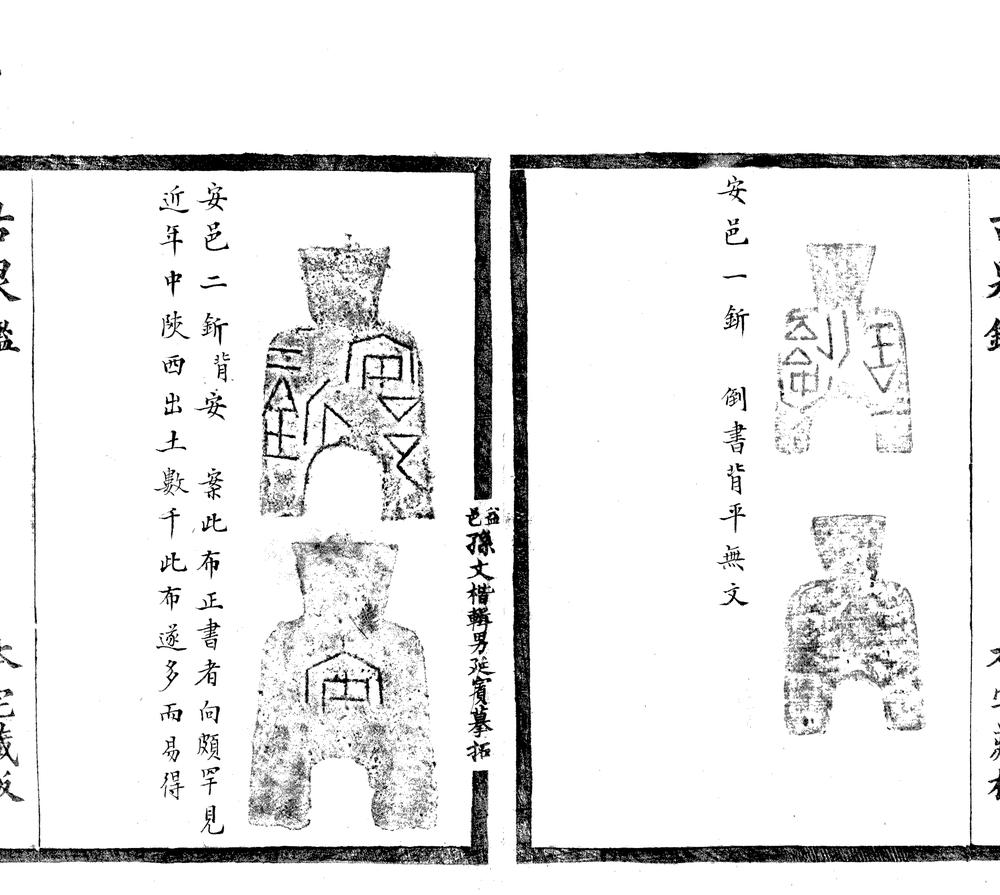 安邑一釿　倒書背平無文
益邑孫文楷輯男延賓摹拓
安邑二釿背安　案此布正書者向頗罕見
近年中陝西出土數千此布遂多而易得